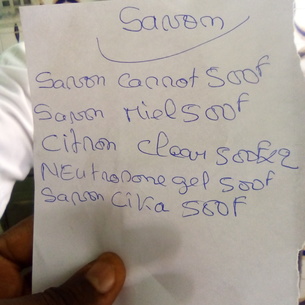 Savon
Savon cannot 500f
Savon Miel 500f
Citron clear 500fx2
NEutrodone gel 500f
Savon Cika 500f